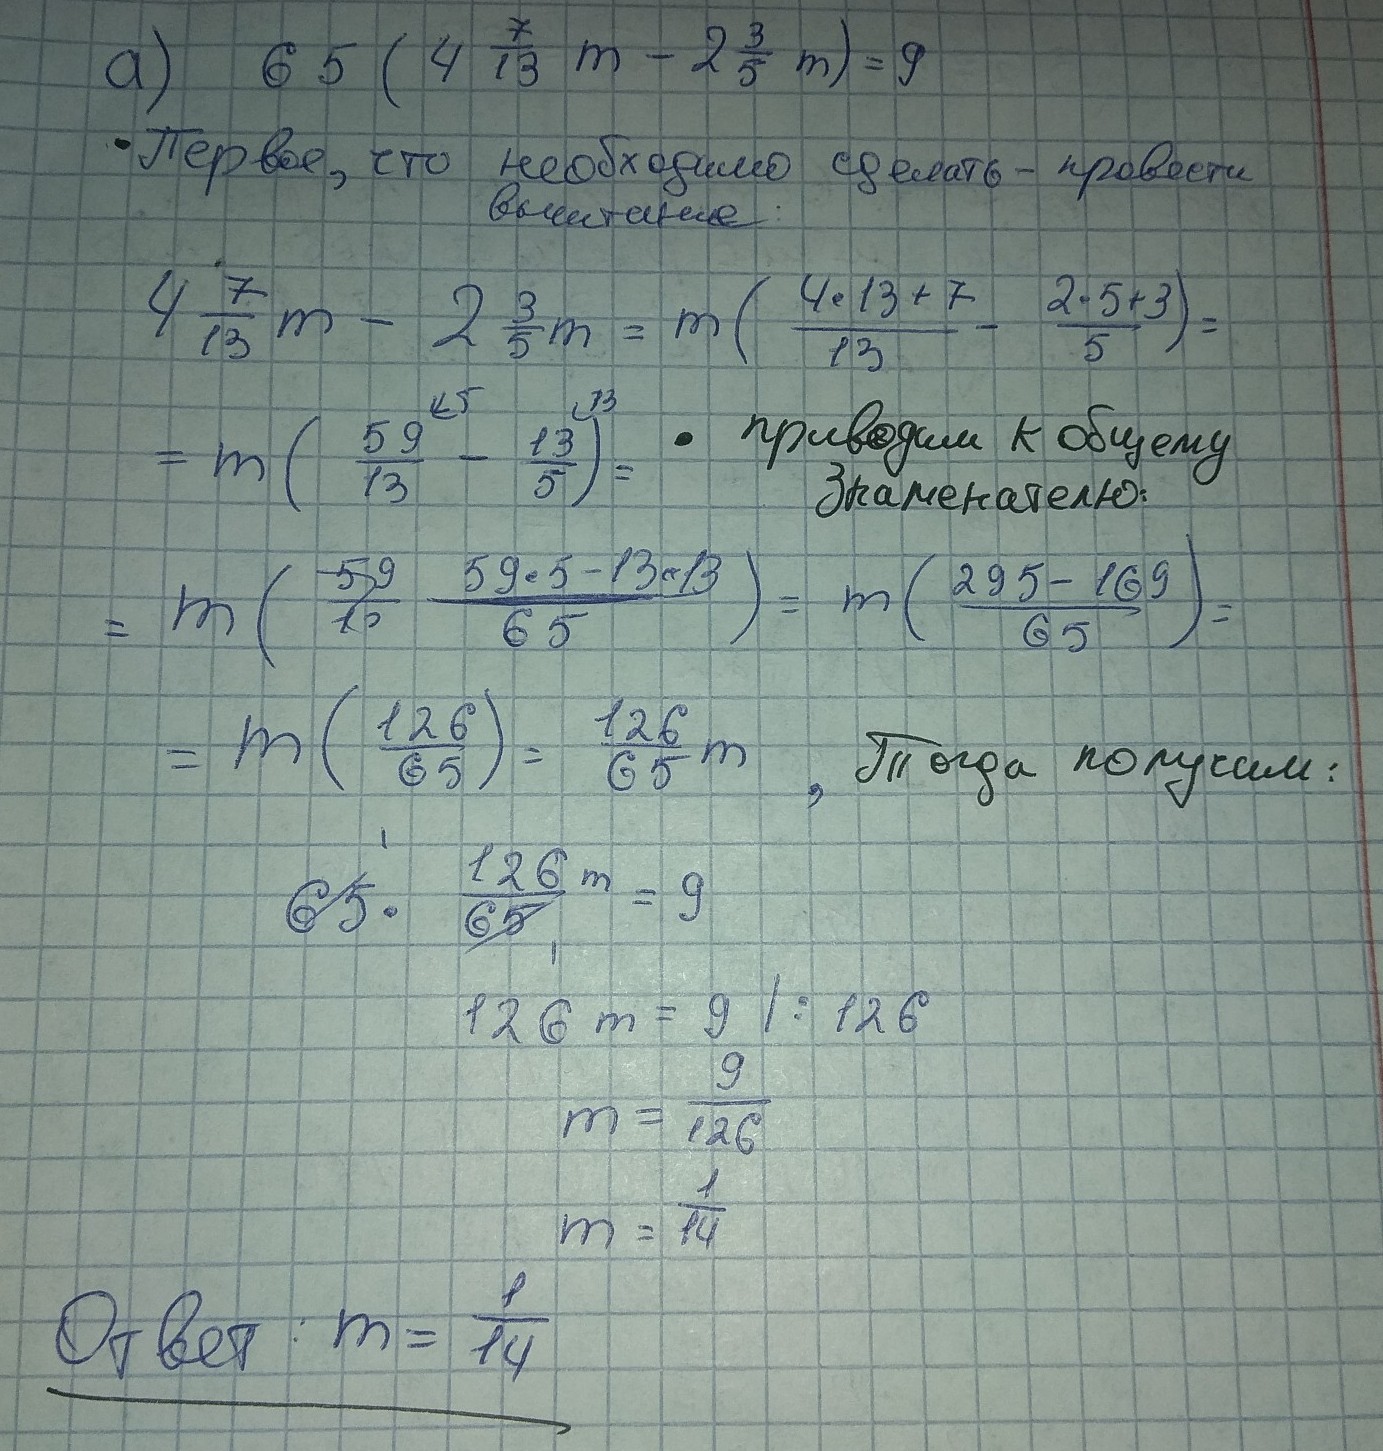 а) 65 (4 7/13 m - 2 3/5 m) = 9
• Первое, что необходимо сделать - провести
вычитание:
4 7/13 m - 2 3/5 m = m ( (4·13+7)/13 - (2·5+3)/5 ) =
= m ( 59/13 ↙5 - 13/5 ↙13 ) = • приводим к общему
знаменателю:
= m ( (59·5-13·13)/65 ) = m ( (295-169)/65 ) =
= m ( 126/65 ) = 126/65 m , Тогда получим:
65 · 126/65 m = 9
126 m = 9 | : 126
m = 9/126
m = 1/14
Ответ: m = 1/14